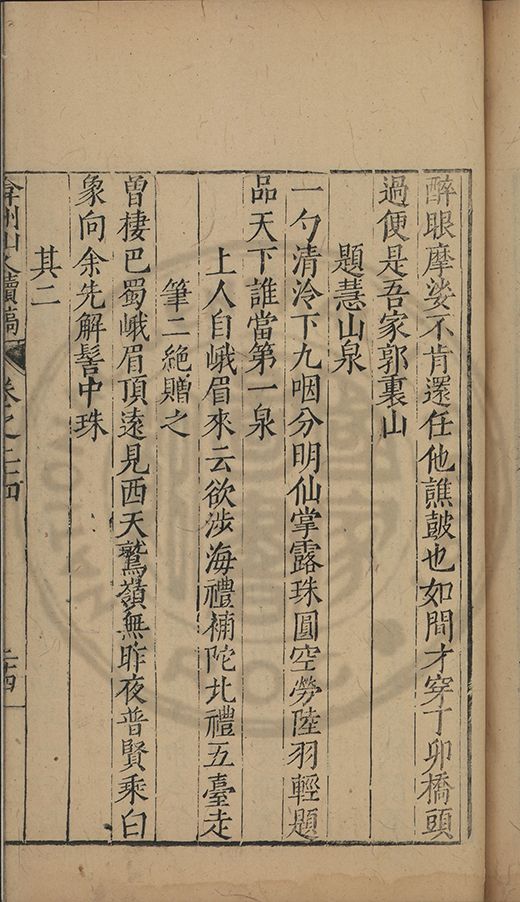 醉眼摩娑不肯還任他譙鼓也如間才穿丁卯橋頭
過便是吾家郭裏山
題慧山泉
一勺清泠下九咽分明仙掌露珠圓空勞陸羽輕題
品天下誰當第一泉
上人自峨眉來云欲涉海禮補陀北禮五臺走
筆二絶贈之
曾棲巴蜀峨眉頂遠見西天鷲嶺無昨夜普賢乗白
象向余先解髻中珠
其二
弇州山人續稿 卷之二十四 二十四